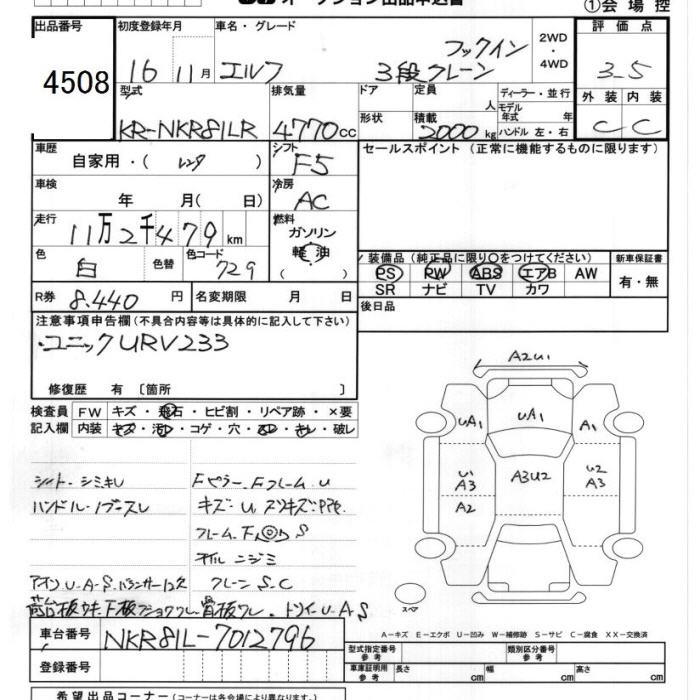 オークション出品申込書
①会場控
出品番号 初度登録年月 車名・グレード 評価点
4508 16 11月 エルフ フックイン 3段クレーン 2WD・4WD 3.5
型式 排気量 ドア 定員 人 ディーラー・並行 外装 内装
KR-NKR81LR 4770cc 形状 積載 2000kg モデル年式 年 ハンドル 左・右 C C
車歴 自家用・( ) シフト F5 セールスポイント (正常に機能するものに限ります)
車検 年 月(日) 冷房 AC
走行 11万2千479km 燃料 ガソリン 軽油 ( )
色 白 色替 色コード 729 装備品(純正品に限り○をつけてください) 新車保証書
PS PW ABS エアB AW 有・無
SR ナビ TV カワ
R券 8.440円 名変期限 月 日 後日品
注意事項申告欄(不具合内容等は具体的に記入して下さい)
・ユニックURV233
修復歴 有 〔箇所 〕
検査員 FW キズ・飛石・ヒビ割・リペア跡・×要
記入欄 内装 キズ・汚・コゲ・穴・・キレ・破レ
A2U1
UA1 UA1 A1
U1 A3 A3U2 U2 A3
A2
シート・シミキレ Fピラー.Fフレーム U
ハンドル・ キズ・U
フレーム.F S
オイルニジミ
クレーン S.C
U.A.S
骨板ワレ. U.A S
スペア
A-キズ E-エクボ U-凹み W-補修跡 S-サビ C-腐食 XX-交換済
車台番号 NKR81L-7012796
型式指定番号 参考 類別区分番号 参考
登録番号 車庫証明用 参考 長さ cm 幅 cm 高さ cm
希望出品コーナー(コーナーは各会場により異なります)